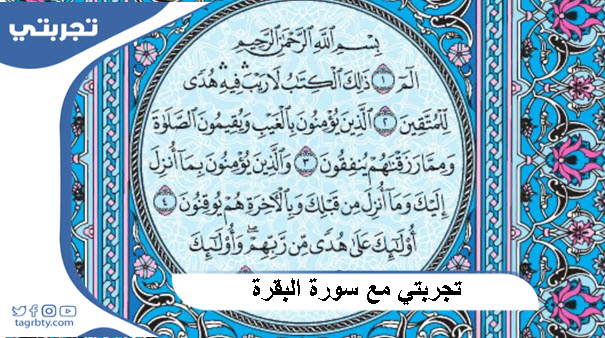 تجربتي
بِسْمِ ٱللَّهِ ٱلرَّحْمَٰنِ ٱلرَّحِيمِ
الٓمٓ ١ ذَٰلِكَ ٱلْكِتَٰبُ لَا رَيْبَ ۛ فِيهِ ۛ هُدًى
لِّلْمُتَّقِينَ ٢ ٱلَّذِينَ يُؤْمِنُونَ بِٱلْغَيْبِ وَيُقِيمُونَ ٱلصَّلَوٰةَ
وَمِمَّا رَزَقْنَٰهُمْ يُنفِقُونَ ٣ وَٱلَّذِينَ يُؤْمِنُونَ بِمَآ أُنزِلَ
إِلَيْكَ وَمَآ أُنزِلَ مِن قَبْلِكَ وَبِٱلْءَاخِرَةِ هُمْ يُوقِنُونَ ٤
أُو۟لَٰٓئِكَ عَلَىٰ هُدًى مِّن رَّبِّهِمْ ۖ وَأُو۟لَٰٓئِكَ
تجربتي مع سورة البقرة
tagrbty.com